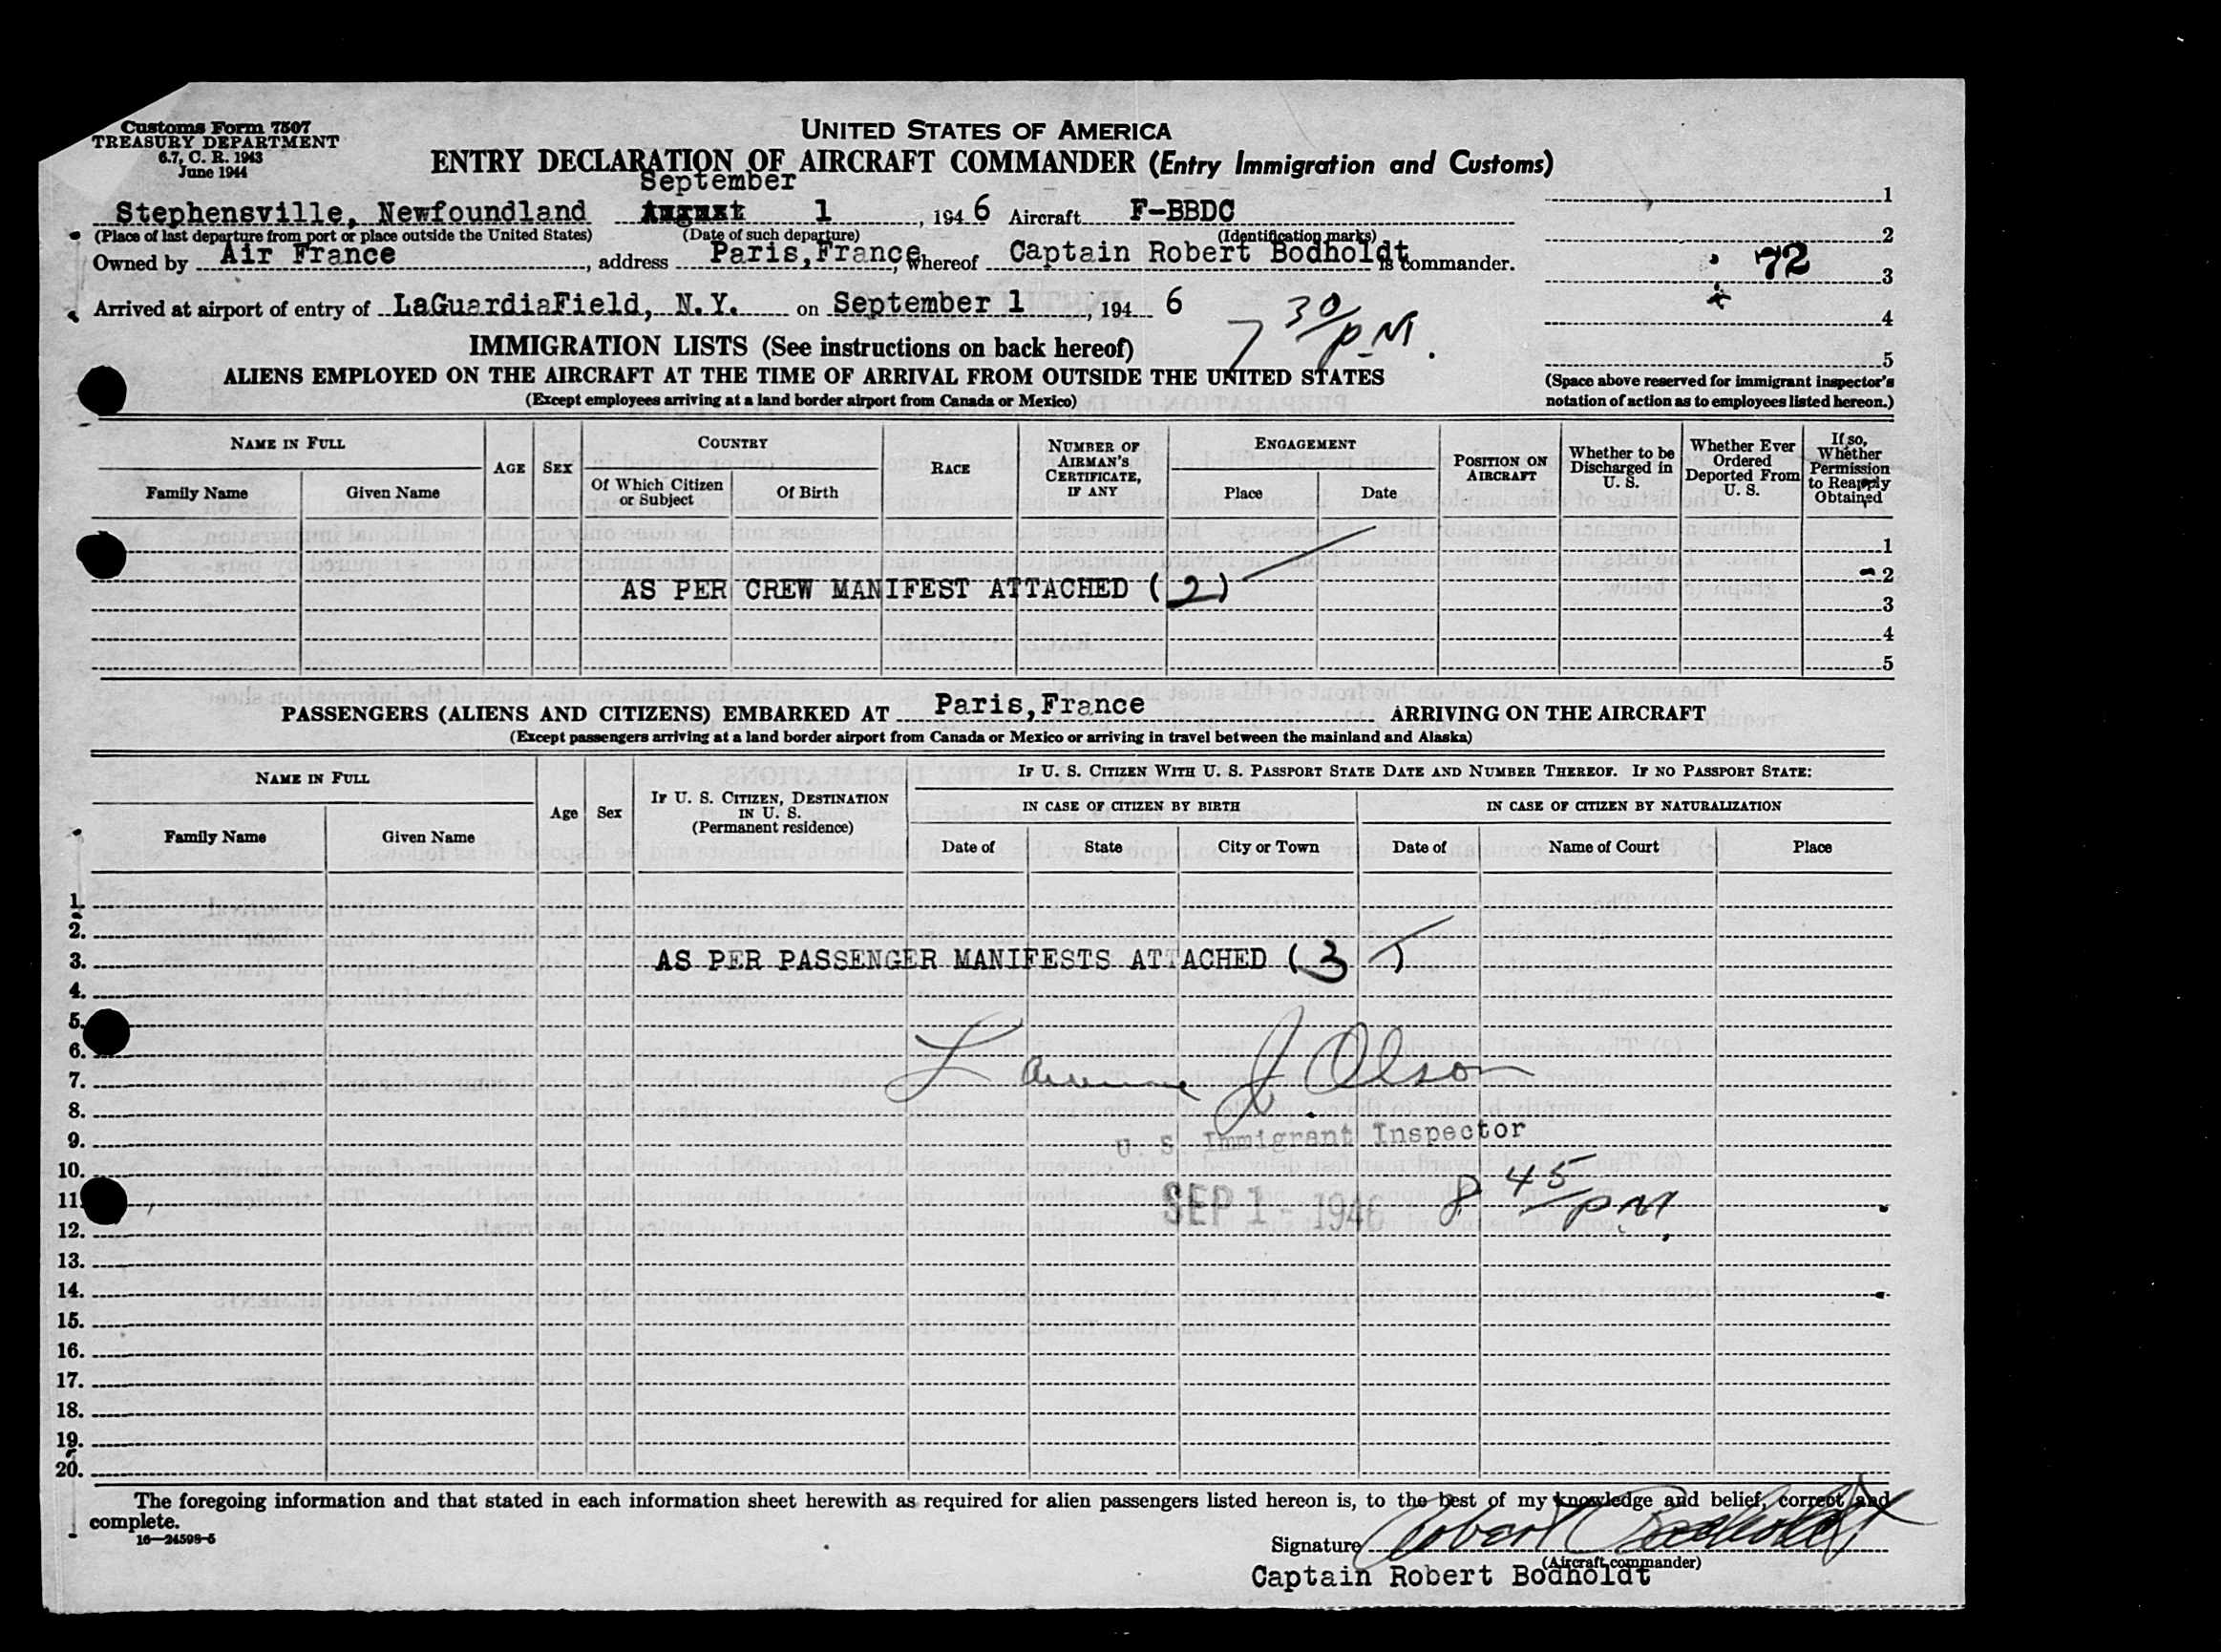 Customs Form 7507
TREASURY DEPARTMENT
6.7, C. R. 1943
June 1944
UNITED STATES OF AMERICA
ENTRY DECLARATION OF AIRCRAFT COMMANDER (Entry Immigration and Customs)
September
Stephensville, Newfoundland August 1, 1946 Aircraft F-BBDC
(Place of last departure from port or place outside the United States) (Date of such departure) (Identification marks)
Owned by Air France, address Paris, France, whereof Captain Robert Bodholdt is commander.
Arrived at airport of entry of LaGuardiaField, N.Y. on September 1, 1946
7 30/PM.
1
2
72
3
4
5
(Space above reserved for immigrant inspector's
notation of action as to employees listed hereon.)
IMMIGRATION LISTS (See instructions on back hereof)
ALIENS EMPLOYED ON THE AIRCRAFT AT THE TIME OF ARRIVAL FROM OUTSIDE THE UNITED STATES
(Except employees arriving at a land border airport from Canada or Mexico)
NAME IN FULL
Family Name
Given Name
AGE
SEX
COUNTRY
Of Which Citizen or Subject
Of Birth
RACE
NUMBER OF AIRMAN'S CERTIFICATE, IF ANY
ENGAGEMENT
Place
Date
POSITION ON AIRCRAFT
Whether to be Discharged in U. S.
Whether Ever Ordered Deported From U. S.
If so, Whether Permission to Reapply Obtained
1
2
AS PER CREW MANIFEST ATTACHED (2)
3
4
5
PASSENGERS (ALIENS AND CITIZENS) EMBARKED AT Paris, France ARRIVING ON THE AIRCRAFT
(Except passengers arriving at a land border airport from Canada or Mexico or arriving in travel between the mainland and Alaska)
NAME IN FULL
Family Name
Given Name
Age
Sex
IF U. S. CITIZEN, DESTINATION IN U. S.
(Permanent residence)
IF U. S. CITIZEN WITH U. S. PASSPORT STATE DATE AND NUMBER THEREOF. IF NO PASSPORT STATE:
IN CASE OF CITIZEN BY BIRTH
IN CASE OF CITIZEN BY NATURALIZATION
Date of
State
City or Town
Date of
Name of Court
Place
1.
2.
3. AS PER PASSENGER MANIFESTS ATTACHED (3)
4.
5.
6.
7. J. Olson
8.
9. U. S. Immigrant Inspector
10.
11. SEP 1 - 1946 8 45/PM
12.
13.
14.
15.
16.
17.
18.
19.
20.
The foregoing information and that stated in each information sheet herewith as required for alien passengers listed hereon is, to the best of my knowledge and belief, correct and
complete.
16—24598-5
Signature Robert Bodholdt
(Aircraft commander)
Captain Robert Bodholdt